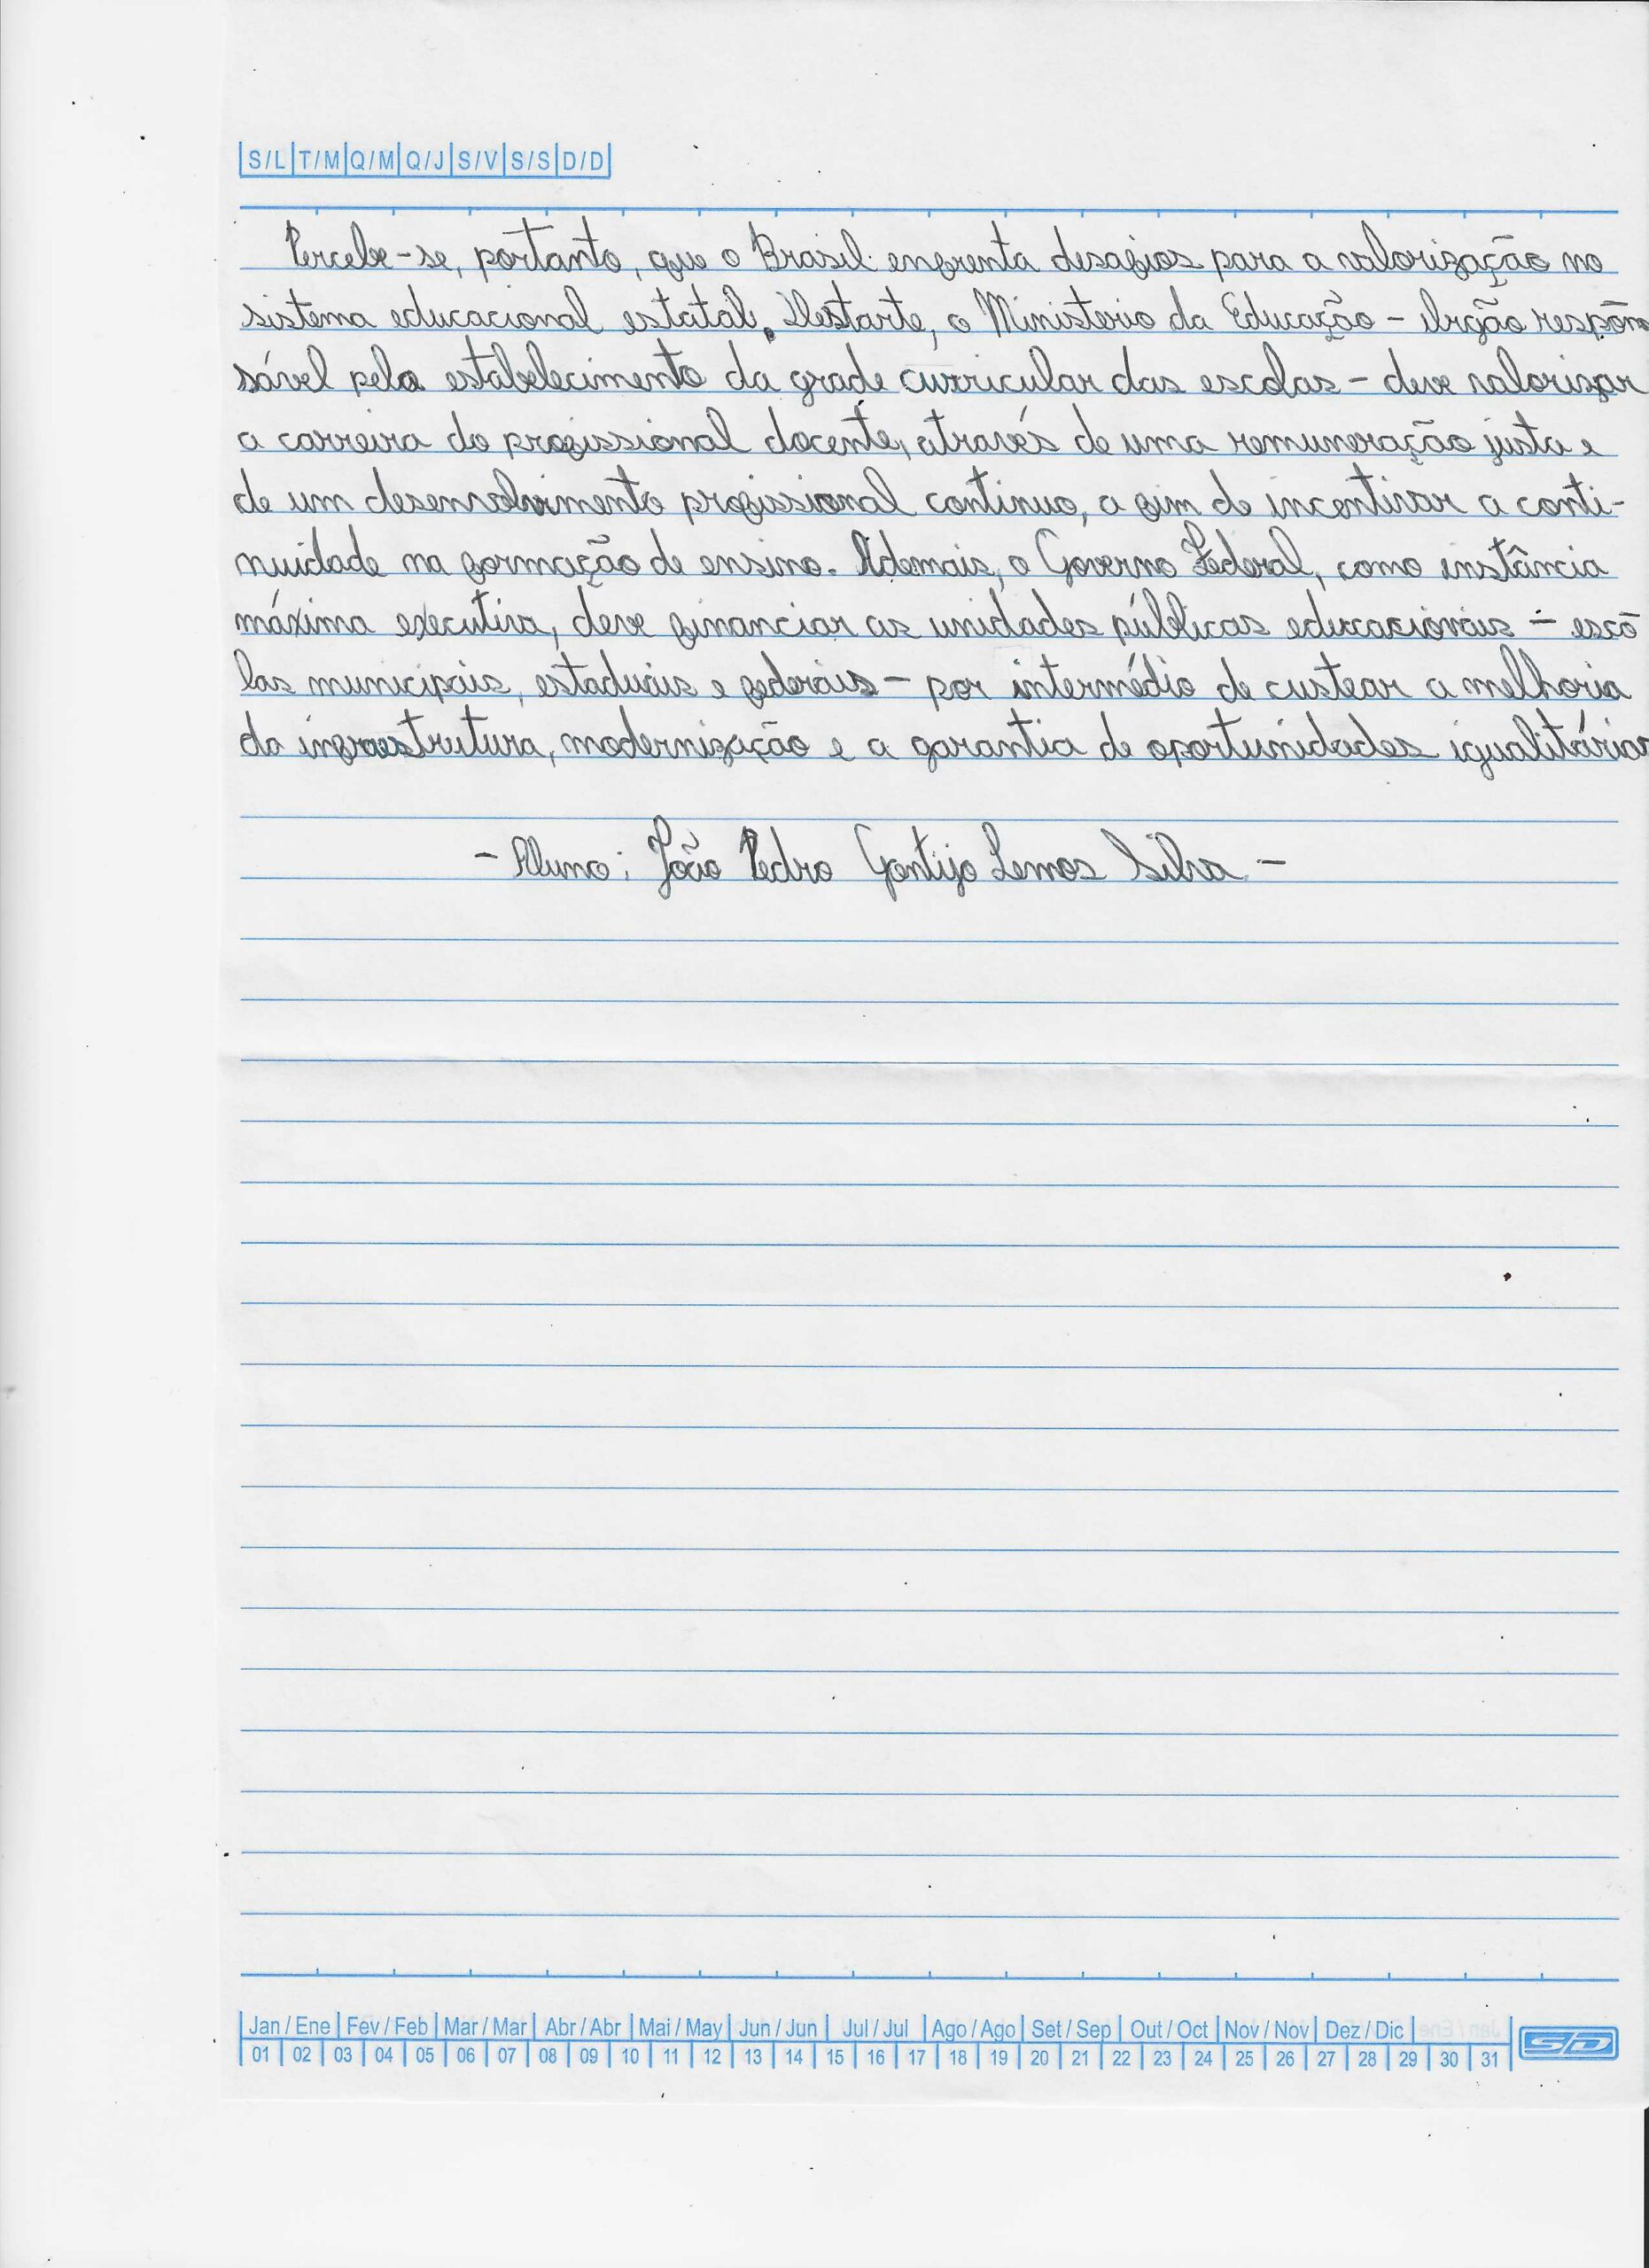 S/L T/M Q/M Q/J S/V S/S D/D
Percebe-se, portanto, que o Brasil enfrenta desafios para a valorização no
sistema educacional estatal. Destarte, o Ministerio da Educação - órgão respon
sável pelo estabelecimento da grade curricular das escolas - deve valorizar
a carreira do profissional docente, através de uma remuneração justa e
de um desenvolvimento profissional continuo, a fim de incentivar a conti-
nuidade na formação de ensino. Ademais, o Governo Federal, como instância
máxima executiva, deve financiar as unidades públicas educacionais - esco
las municipais, estaduais e federais - por intermédio de custear a melhoria
da infraestrutura, modernização e a garantia de oportunidades igualitárias
- Aluno: João Pedro Gontijo Lemos Silva -
Jan/Ene Fev/Feb Mar/Mar Abr/Abr Mai/May Jun/Jun Jul/Jul Ago/Ago Set/Sep Out/Oct Nov/Nov Dez/Dic
01 02 03 04 05 06 07 08 09 10 11 12 13 14 15 16 17 18 19 20 21 22 23 24 25 26 27 28 29 30 31
S/D